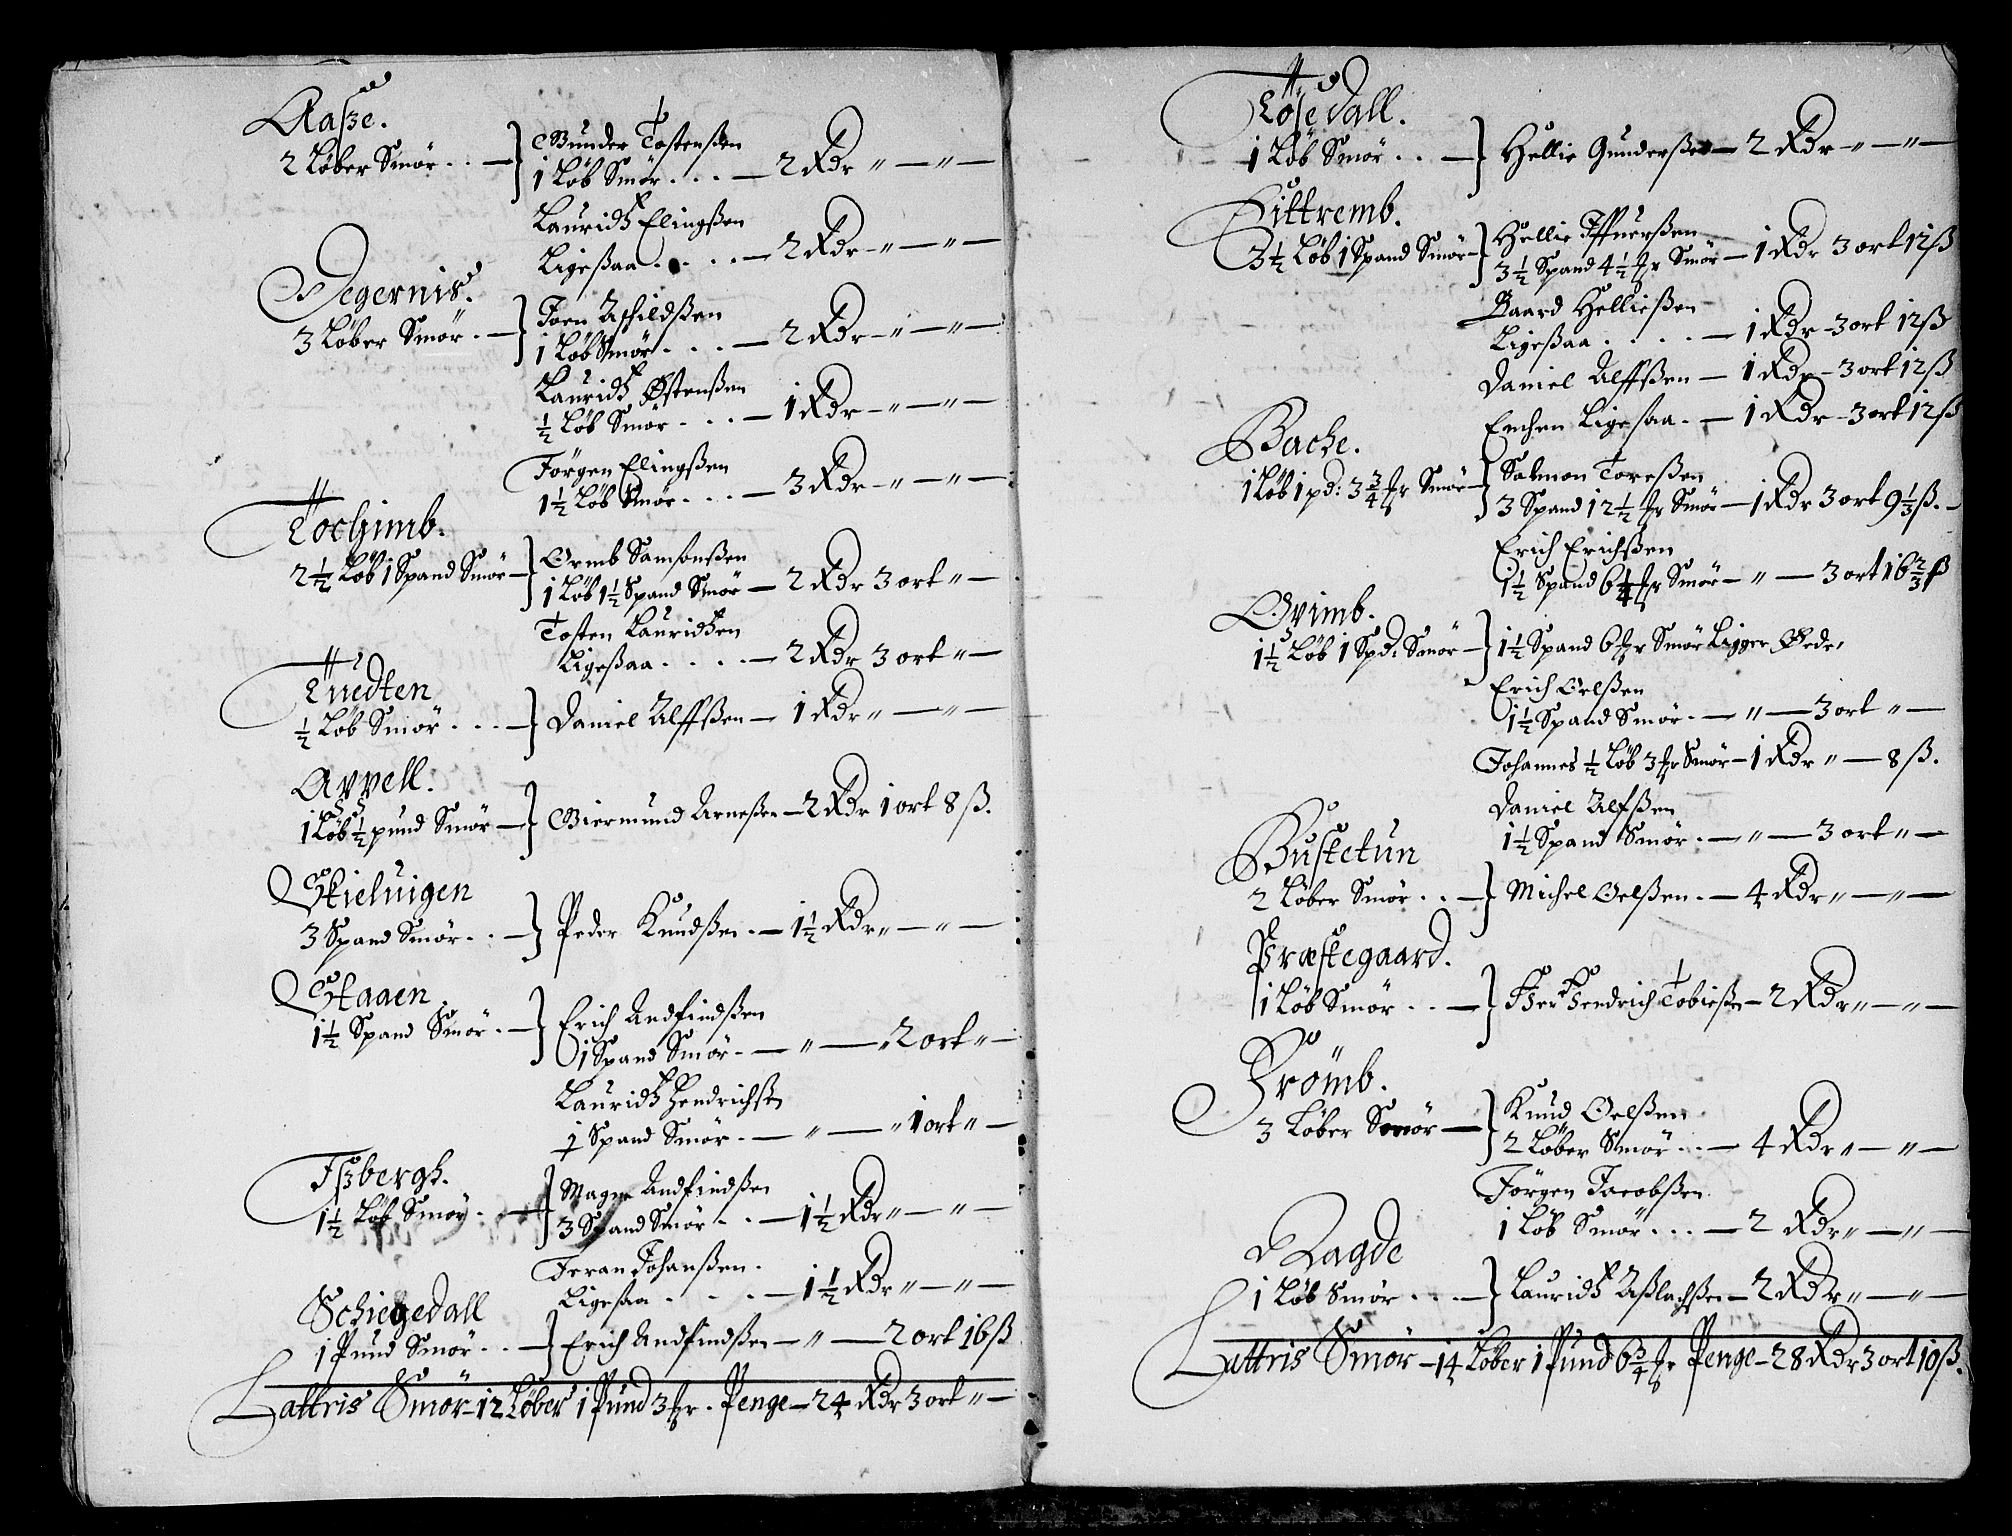 Aasze.
2 Løber Smør . . —
Gunder Tostensßen
1 Løb Smør . . . — 2 Rdr „ — „ —
Lauridtz Elingßen
Ligeßaa . . . . — 2 Rdr — „ — „ —
Degernis.
3 Løber Smør . . —
Joen Aschildßen
1 Løb Smør . . . — 2 Rdr — „ — „ —
Lauridtz Østenßen
½ Løb Smør . . . — 1 Rdr — „ — „ —
Jørgen Elingßen
1½ Løb Smør . . . — 3 Rdr — „ — „ —
Tochimb.
2½ Løb 1 Spand Smør —
Ormb Samsonßen
1 Løb 1½ Spand Smør — 2 Rdr 3 ort „ —
Tosten Lauridtzen
Ligeßaa . . . . — 2 Rdr 3 ort „ —
Tuedten
½ Løb Smør . . . —
Daniel Alffßen — 1 Rdr „ — „ —
Arvell.
1 Løb ½ pund Smør —
Giermund Arneßen — 2 Rdr 1 ort 8 ß.
Skieluigen
3 Spand Smør . . —
Peder Knudßen . — 1½ Rdr „ — „ —
Staaen
1½ Spand Smør . —
Erich Andfindßen
1 Spand Smør . — „ — „ 2 ort „ —
Lauridtz Hendrichßen
1 Spand Smør . — „ — „ 1 ort „ —
Jszbergh.
1½ Løb Smør . —
Magne Andfindßen
3 Spand Smør . . — 1½ Rdr „ — „ —
Jeran Johanßen .
Ligesaa . . . . — 1½ Rdr „ — „ —
Schiegedall
1 Pund Smør . . —
Erich Andfindßen — „ — 2 ort 16 ß
Lattris Smør — 12 Løber 1 Pund 3 . Penge — 24 Rdr 3 ort „ —
Tosedall.
1 Løb Smør . . . —
Hellie Gunderßen — 2 Rdr — „ — „ —
Sittremb.
3½ Løb 1 Spand Smør —
Hellie Iffuerßen
3½ Spand 4½ Smør — 1 Rdr 3 ort 12 ß
Baard Helließen
Ligeßaa . . . . — 1 Rdr — 3 ort 12 ß
Daniel Alffßen — 1 Rdr — 3 ort 12 ß
Enchen Ligesaa . — 1 Rdr — 3 ort 12 ß
Bache.
1 Løb 1 pd: 3¾ Smør —
Salmon Toreßen
3 Spand 12½ Smør — 1 Rdr 3 ort 9⅓ ß . —
Erich Erichßen
1½ Spand 6¼ Smør — „ — 3 ort 16⅔ ß
Gvimb.
1½ Løb 1 Spd: Smør —
1½ Spand 6 Smør Ligger Øede,
Erich Oelßen
1½ Spand Smør . — „ — 3 ort „ —
Johannes ½ Løb 3 Smør — 1 Rdr „ — 8 ß.
Daniel Alfßen
1½ Spand Smør . — „ — 3 ort „ —
Bustetun
2 Løber Smør . . —
Michel Oelßen . — 4 Rdr „ — „ —
Præstegaard.
1 Løb Smør . . —
Her Hendrich Tobießen — 2 Rdr „ — „ —
Frömb.
3 Løber Smør —
Knud Oelßen
2 Løber Smør . . — 4 Rdr „ — „ —
Jörgen Jacobßen
1 Løb Smør . . . — 2 Rdr „ — „ —
Ragde
1 Løb Smør . . . —
Lauridtz Aßlachßen — 2 Rdr „ — „ —
Lattris Smør — 14 Løber 1 Pund 6¾ Penge — 28 Rdr 3 ort 10 ß.